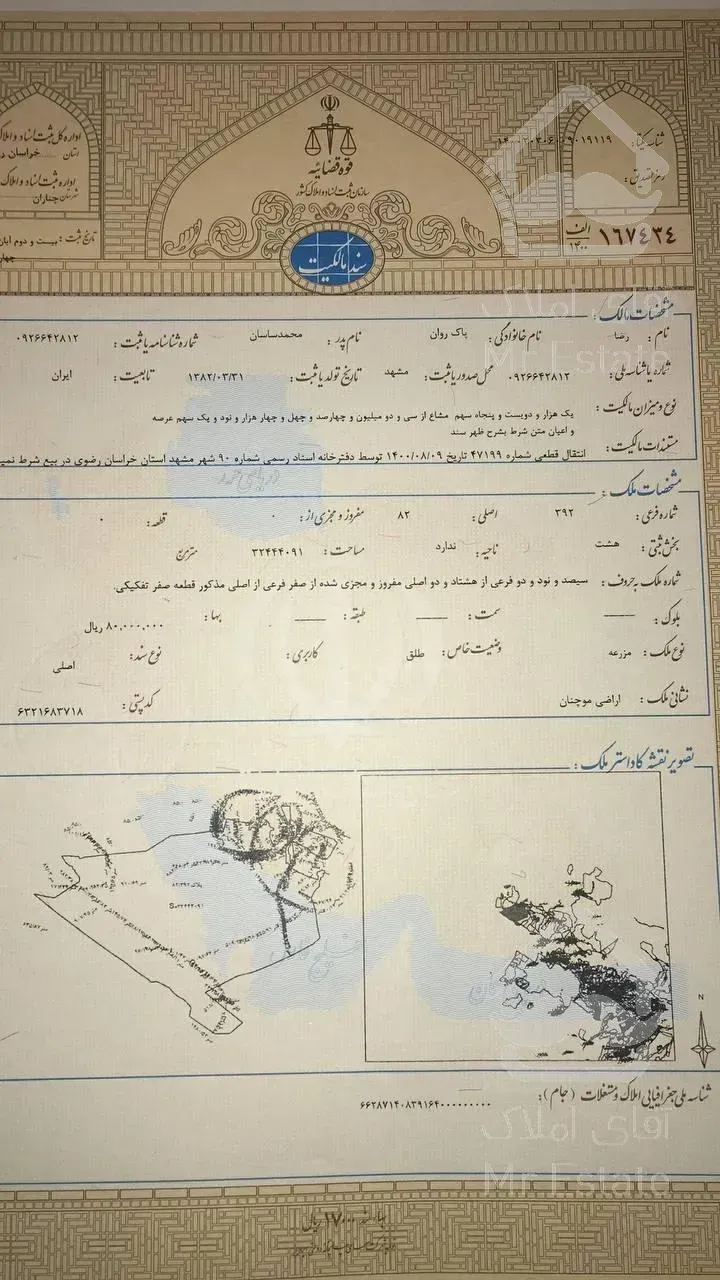 اداره کل ثبت اسناد و املاک
استان خراسان
اداره ثبت اسناد و املاک
شهرستان چناران
تاریخ ثبت: بیست و دوم آبان
قوه قضائیه
سازمان ثبت اسناد و املاک کشور
سند مالکیت
شناسه یکتا:
رمز تصدیق:
۱۶۷٤۳٤ الف ۱۴۰۰
مشخصات مالک:
نام: رضا نام خانوادگی: پاک روان نام پدر: محمدساسان شماره شناسنامه یا ثبت: ۰۹۲۶۶۴۲۸۱۲
شماره یا شناسه ملی: ۰۹۲۶۶۴۲۸۱۲ محل صدور یا ثبت: مشهد تاریخ تولد یا ثبت: ۱۳۸۲/۰۳/۳۱ تابعیت: ایران
نوع و میزان مالکیت: یک هزار و دویست و پنجاه سهم مشاع از سی و دو میلیون و چهارصد و چهل و چهار هزار و نود و یک سهم عرصه
و اعیان متن شرط بشرح ظهر سند
مستندات مالکیت: انتقال قطعی شماره ۴۷۱۹۹ تاریخ ۱۴۰۰/۰۸/۰۹ توسط دفترخانه اسناد رسمی شماره ۹۰ شهر مشهد استان خراسان رضوی در بیع شرط نمی
مشخصات ملک:
شماره فرعی: ۳۹۲ اصلی: ۸۲ مفروز و مجزی از: ۰ قطعه: ۰
بخش ثبتی: هشت ناحیه: ندارد مساحت: ۳۲۴۴۴۰۹۱ مترمربع
شماره ملک به حروف: سیصد و نود و دو فرعی از هشتاد و دو اصلی مفروز و مجزی شده از صفر فرعی از اصلی مذکور قطعه صفر تفکیکی.
بلوک: سمت: طبقه: بها: ۸۰,۰۰۰,۰۰۰ ریال
نوع ملک: مزرعه وضعیت خاص: طلق کاربری: نوع سند: اصلی
نشانی ملک: اراضی موچنان کد پستی: ۶۳۲۱۶۸۳۷۱۸
تصویر نقشه کاداستر ملک:
N
شناسه ملی جغرافیایی املاک و مستغلات (جام): ۶۶۲۸۷۱۴۰۸۳۹۱۶۴۰۰۰۰۰۰۰۰۰
آقای املاک
Mr Estate
آقای املاک
Mr Estate